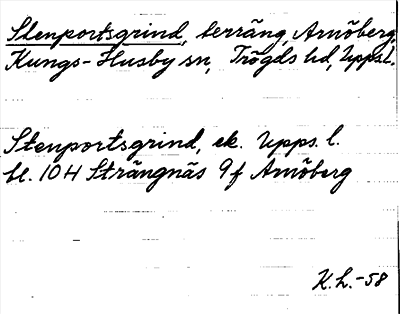 Stenportsgrind, terräng, Arnöberg,
Kungs-Husby sn, Trögds hd, Uppsl.
Stenportsgrind, ek. Upps. l.
bl. 104 Strängnäs 9f Arnöberg
K.L.-58